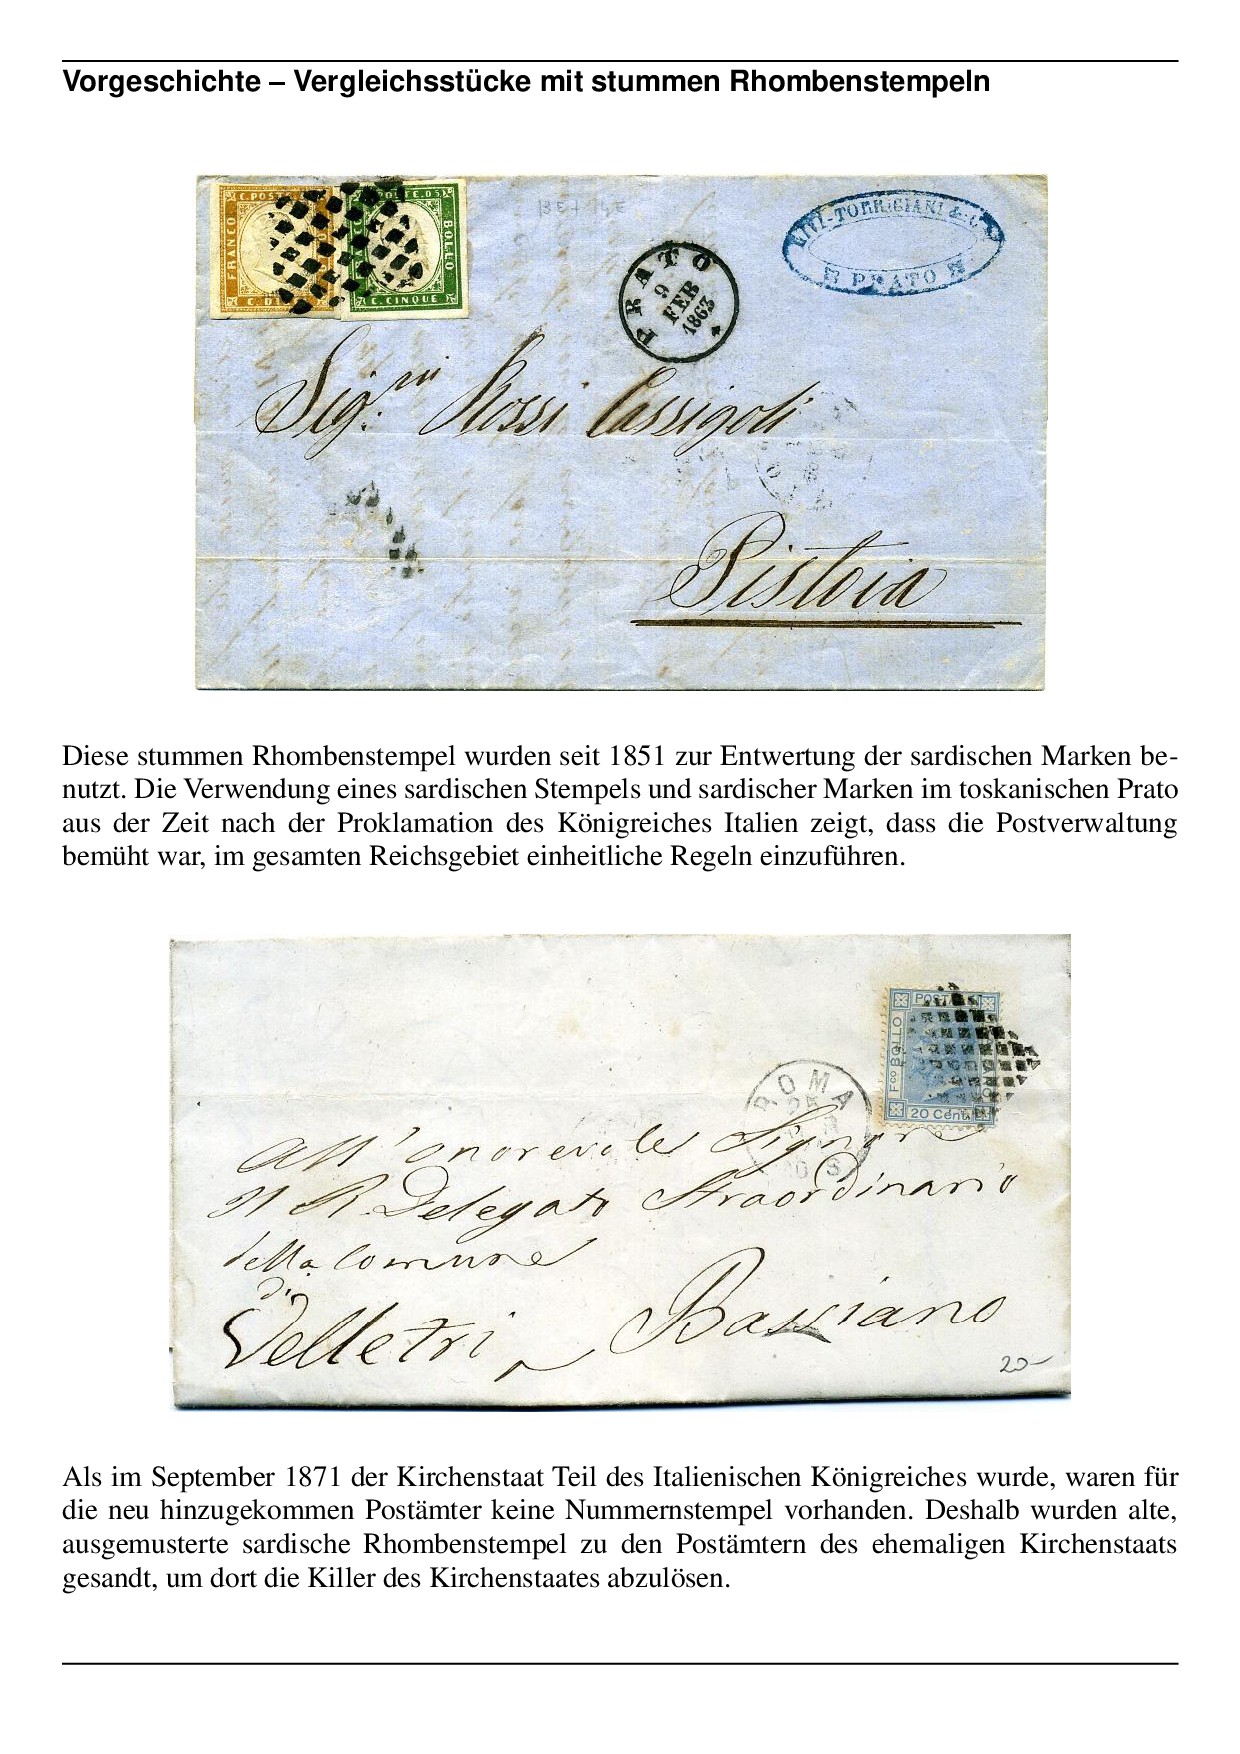 Vorgeschichte – Vergleichsstücke mit stummen Rhombenstempeln
C. POSTE
FRANCO
POSTE
BOLLO
C. CINQUE
PRATO
9
FEB
1863
TORRIGIANI & C.
PRATO
Sig.ri Rossi Cassigoli
Pistoia
Diese stummen Rhombenstempel wurden seit 1851 zur Entwertung der sardischen Marken be-
nutzt. Die Verwendung eines sardischen Stempels und sardischer Marken im toskanischen Prato
aus der Zeit nach der Proklamation des Königreiches Italien zeigt, dass die Postverwaltung
bemüht war, im gesamten Reichsgebiet einheitliche Regeln einzuführen.
Fco BOLLO
20 Cent
ROMA
All'onorevole Signore
Il R. Delegato Straordinario
della Comune
di
Velletri Bassiano
20-
Als im September 1871 der Kirchenstaat Teil des Italienischen Königreiches wurde, waren für
die neu hinzugekommen Postämter keine Nummernstempel vorhanden. Deshalb wurden alte,
ausgemusterte sardische Rhombenstempel zu den Postämtern des ehemaligen Kirchenstaats
gesandt, um dort die Killer des Kirchenstaates abzulösen.